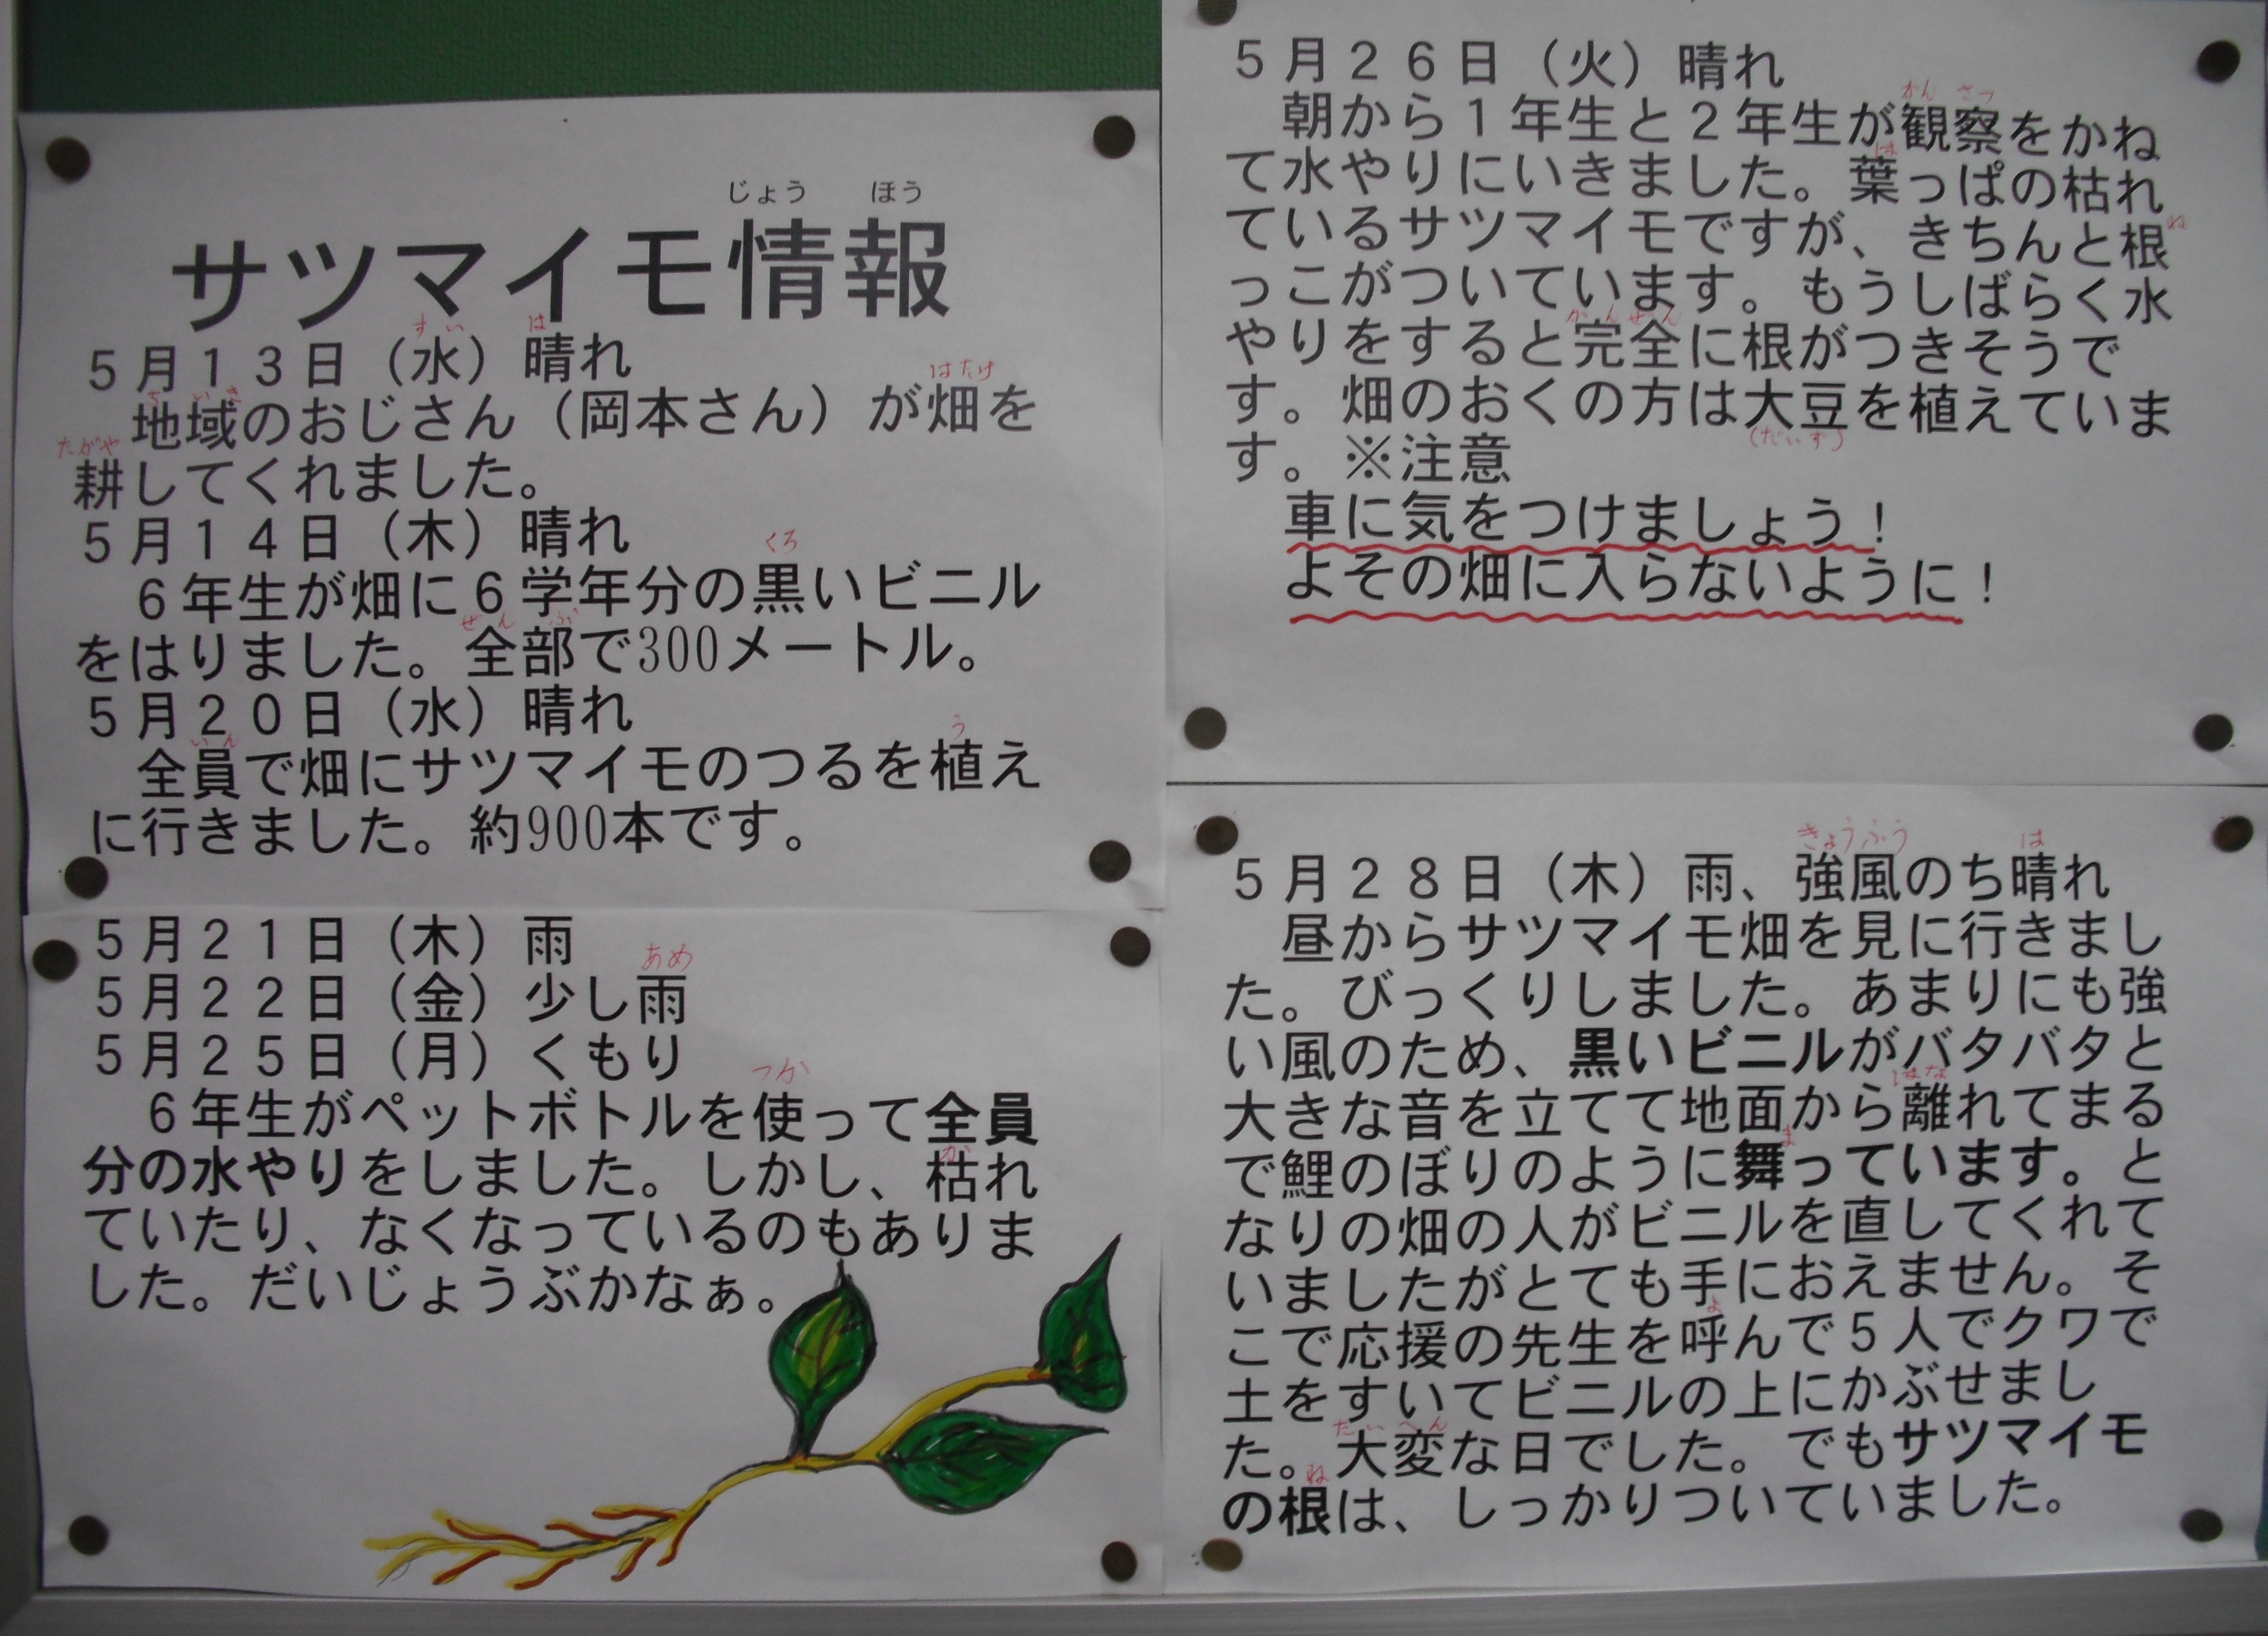 じょう ほう
サツマイモ情報
すい は
5月13日（水）晴れ
ちいき はたけ
地域のおじさん（岡本さん）が畑を
たがや
耕してくれました。
5月14日（木）晴れ
くろ
6年生が畑に6学年分の黒いビニル
ぜんぶ
をはりました。全部で300メートル。
5月20日（水）晴れ
いん う
全員で畑にサツマイモのつるを植え
に行きました。約900本です。
5月21日（木）雨
あめ
5月22日（金）少し雨
5月25日（月）くもり
つか
6年生がペットボトルを使って全員
か
分の水やりをしました。しかし、枯れ
ていたり、なくなっているのもありま
した。だいじょうぶかなぁ。
5月26日（火）晴れ
かんさつ
朝から1年生と2年生が観察をかね
は
て水やりにいきました。葉っぱの枯れ
ね
ているサツマイモですが、きちんと根
っこがついています。もうしばらく水
かんぜん
やりをすると完全に根がつきそうで
す。畑のおくの方は大豆を植えていま
（だいず）
す。※注意
車に気をつけましょう！
よその畑に入らないように！
きょうふう は
5月28日（木）雨、強風のち晴れ
昼からサツマイモ畑を見に行きまし
た。びっくりしました。あまりにも強
い風のため、黒いビニルがバタバタと
はな
大きな音を立てて地面から離れてまる
ま
で鯉のぼりのように舞っています。と
なりの畑の人がビニルを直してくれて
いましたがとても手におえません。そ
よ
こで応援の先生を呼んで5人でクワで
土をすいてビニルの上にかぶせまし
たいへん
た。大変な日でした。でもサツマイモ
ね
の根は、しっかりついていました。